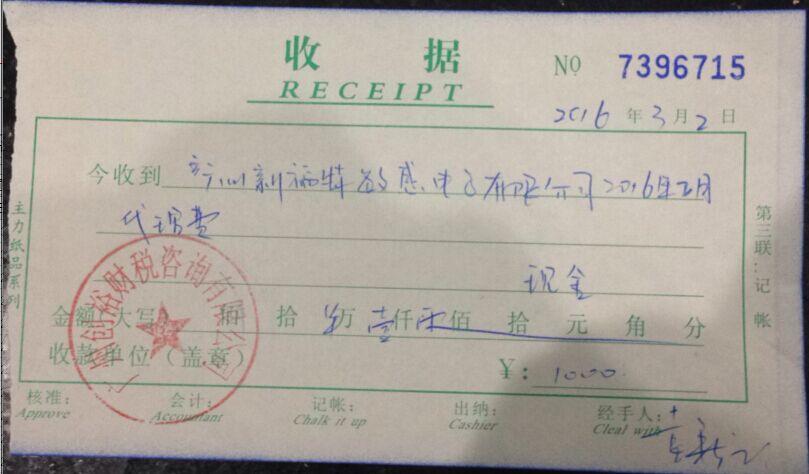 收据
NO 7396715
RECEIPT
2016 年 3 月 2 日
今收到 新福特敏感电子有限公司2016年2月
代理费
现金
金额(大写) 佰 拾 万 壹仟零佰 拾 元 角 分
收款单位(盖章) ¥: 1000.
核准: 会计: 记帐: 出纳: 经手人:
Approve Accountant Chalk it up Cashier Cleal with
主力纸品系列
第三联:记帐
创裕财税咨询有限公司